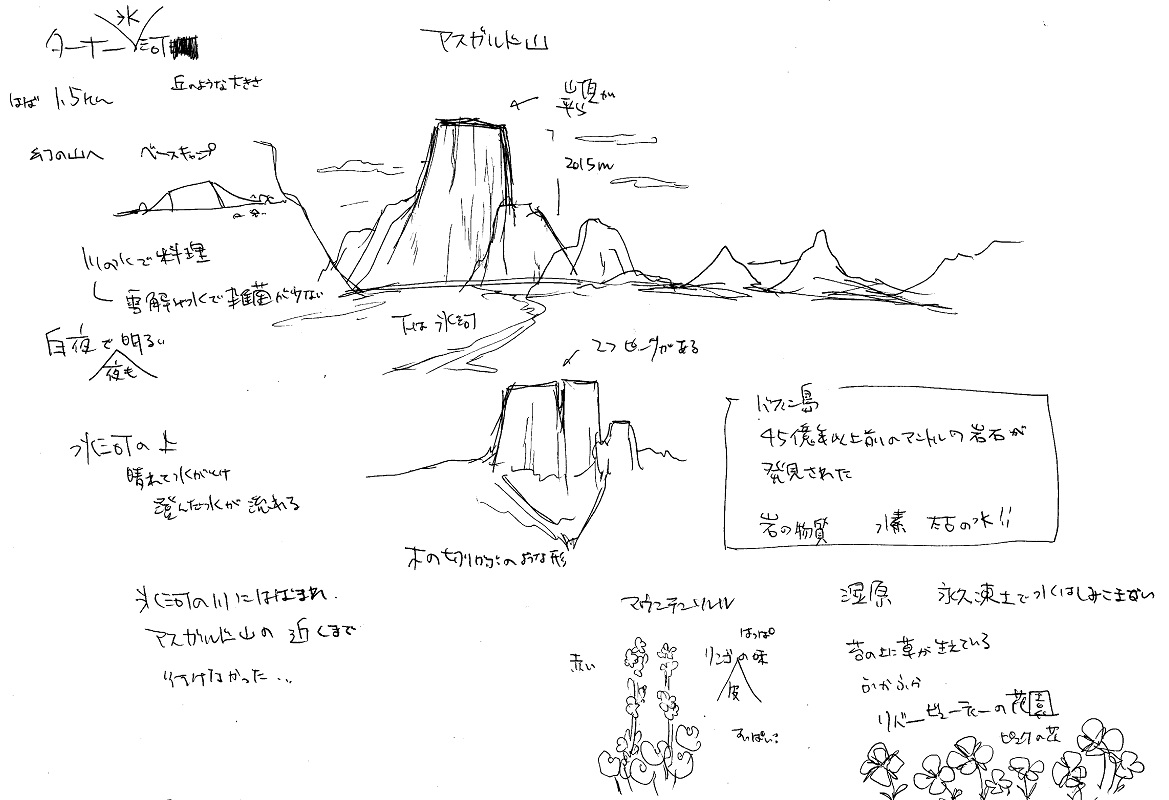 ターナー氷河
アスガルド山
はば 1.5km
丘のような大きさ
山頂が
平ら
幻の山へ
ベースキャンプ
2015m
川の水で料理
雪解け水で雑菌が少ない
白夜で夜も明るい
下は氷河
2つピークがある
氷河の上
晴れて氷がとけ
澄んだ水が流れる
木の切りかぶのような形
バフィン島
45億年以上前のマントルの岩石が
発見された
岩の物質 水素 太古の水!!
氷河の川にはばまれ
アスガルド山の近くまで
行けなかった...
マウンテンソレル
赤い
はっぱ
リンゴの皮の味
すっぱい
湿原 永久凍土で水はしみこまない
苔の上に草が生えている
ふかふか
リバービューティーの花園
ピンクの花